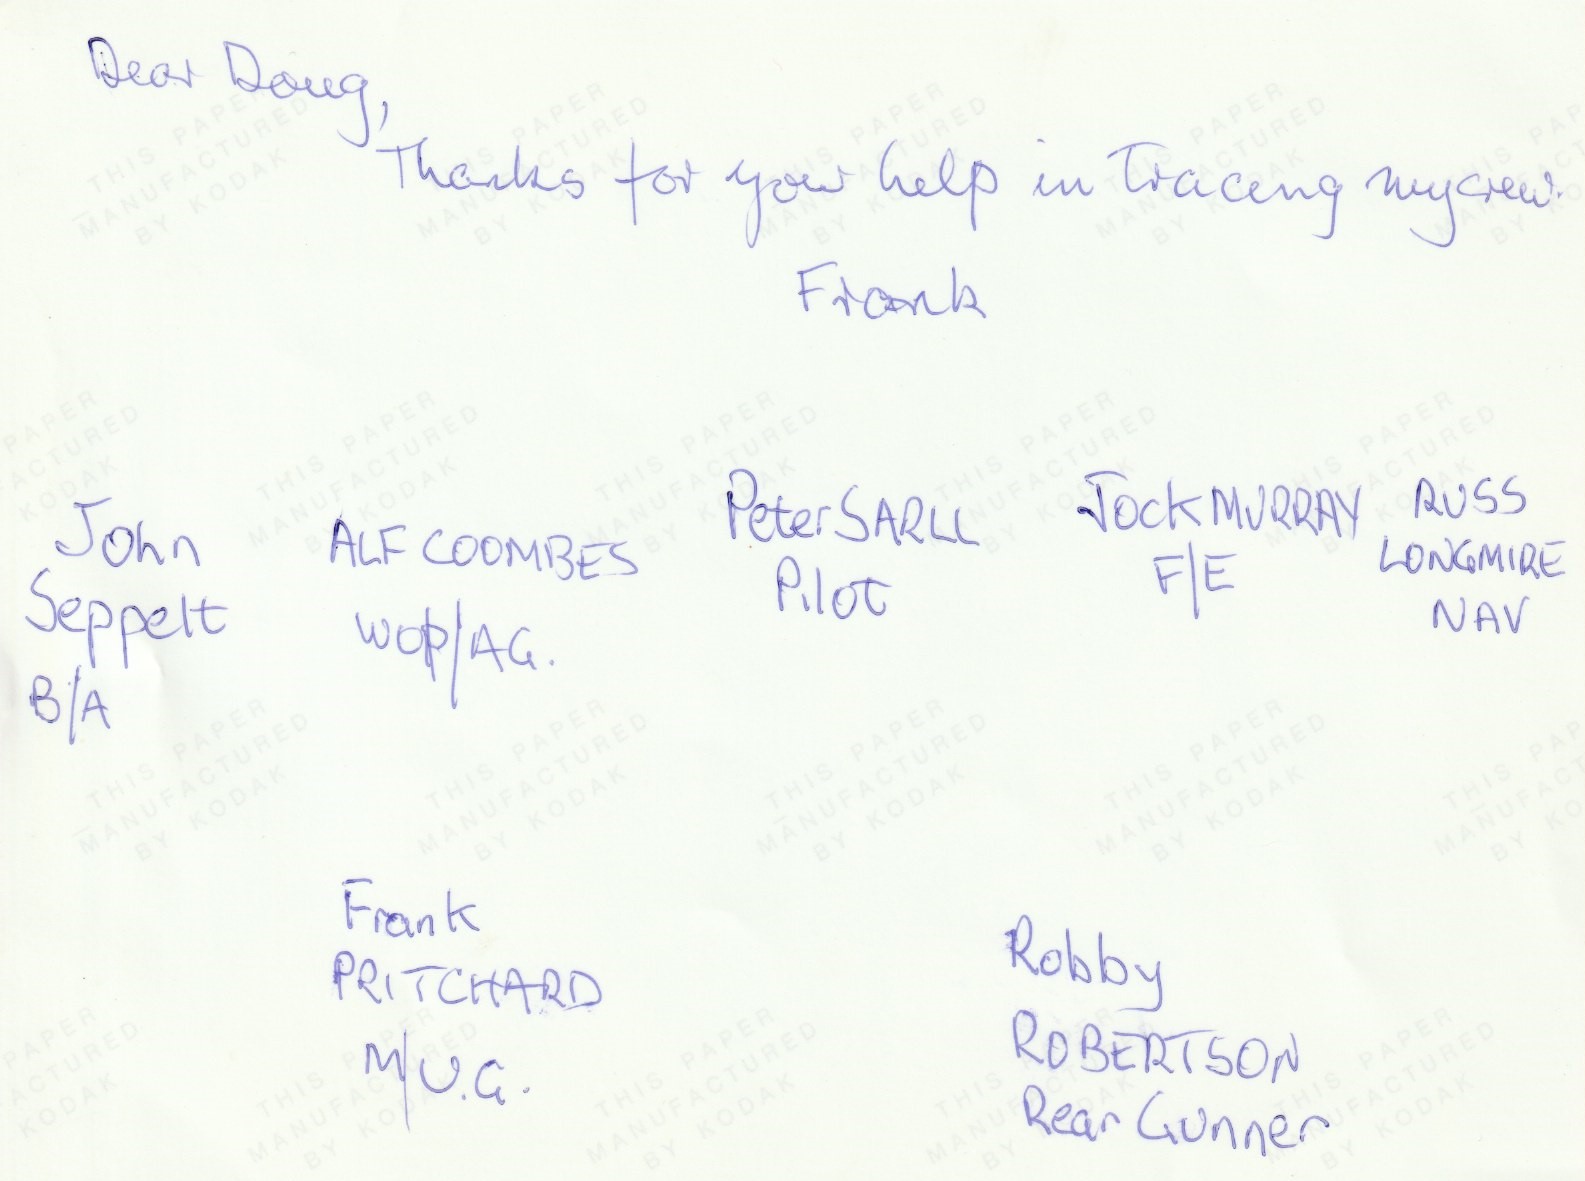 Dear Doug,
Thanks for your help in Tracing my crew.
Frank
John
Seppelt
B/A
ALF COOMBES
WOP/AG.
Peter SARLL
Pilot
Jock MURRAY
F/E
RUSS
LONGMIRE
NAV
Frank
PRITCHARD
M/U.G.
Robby
ROBERTSON
Rear Gunner
THIS PAPER
MANUFACTURED
BY KODAK